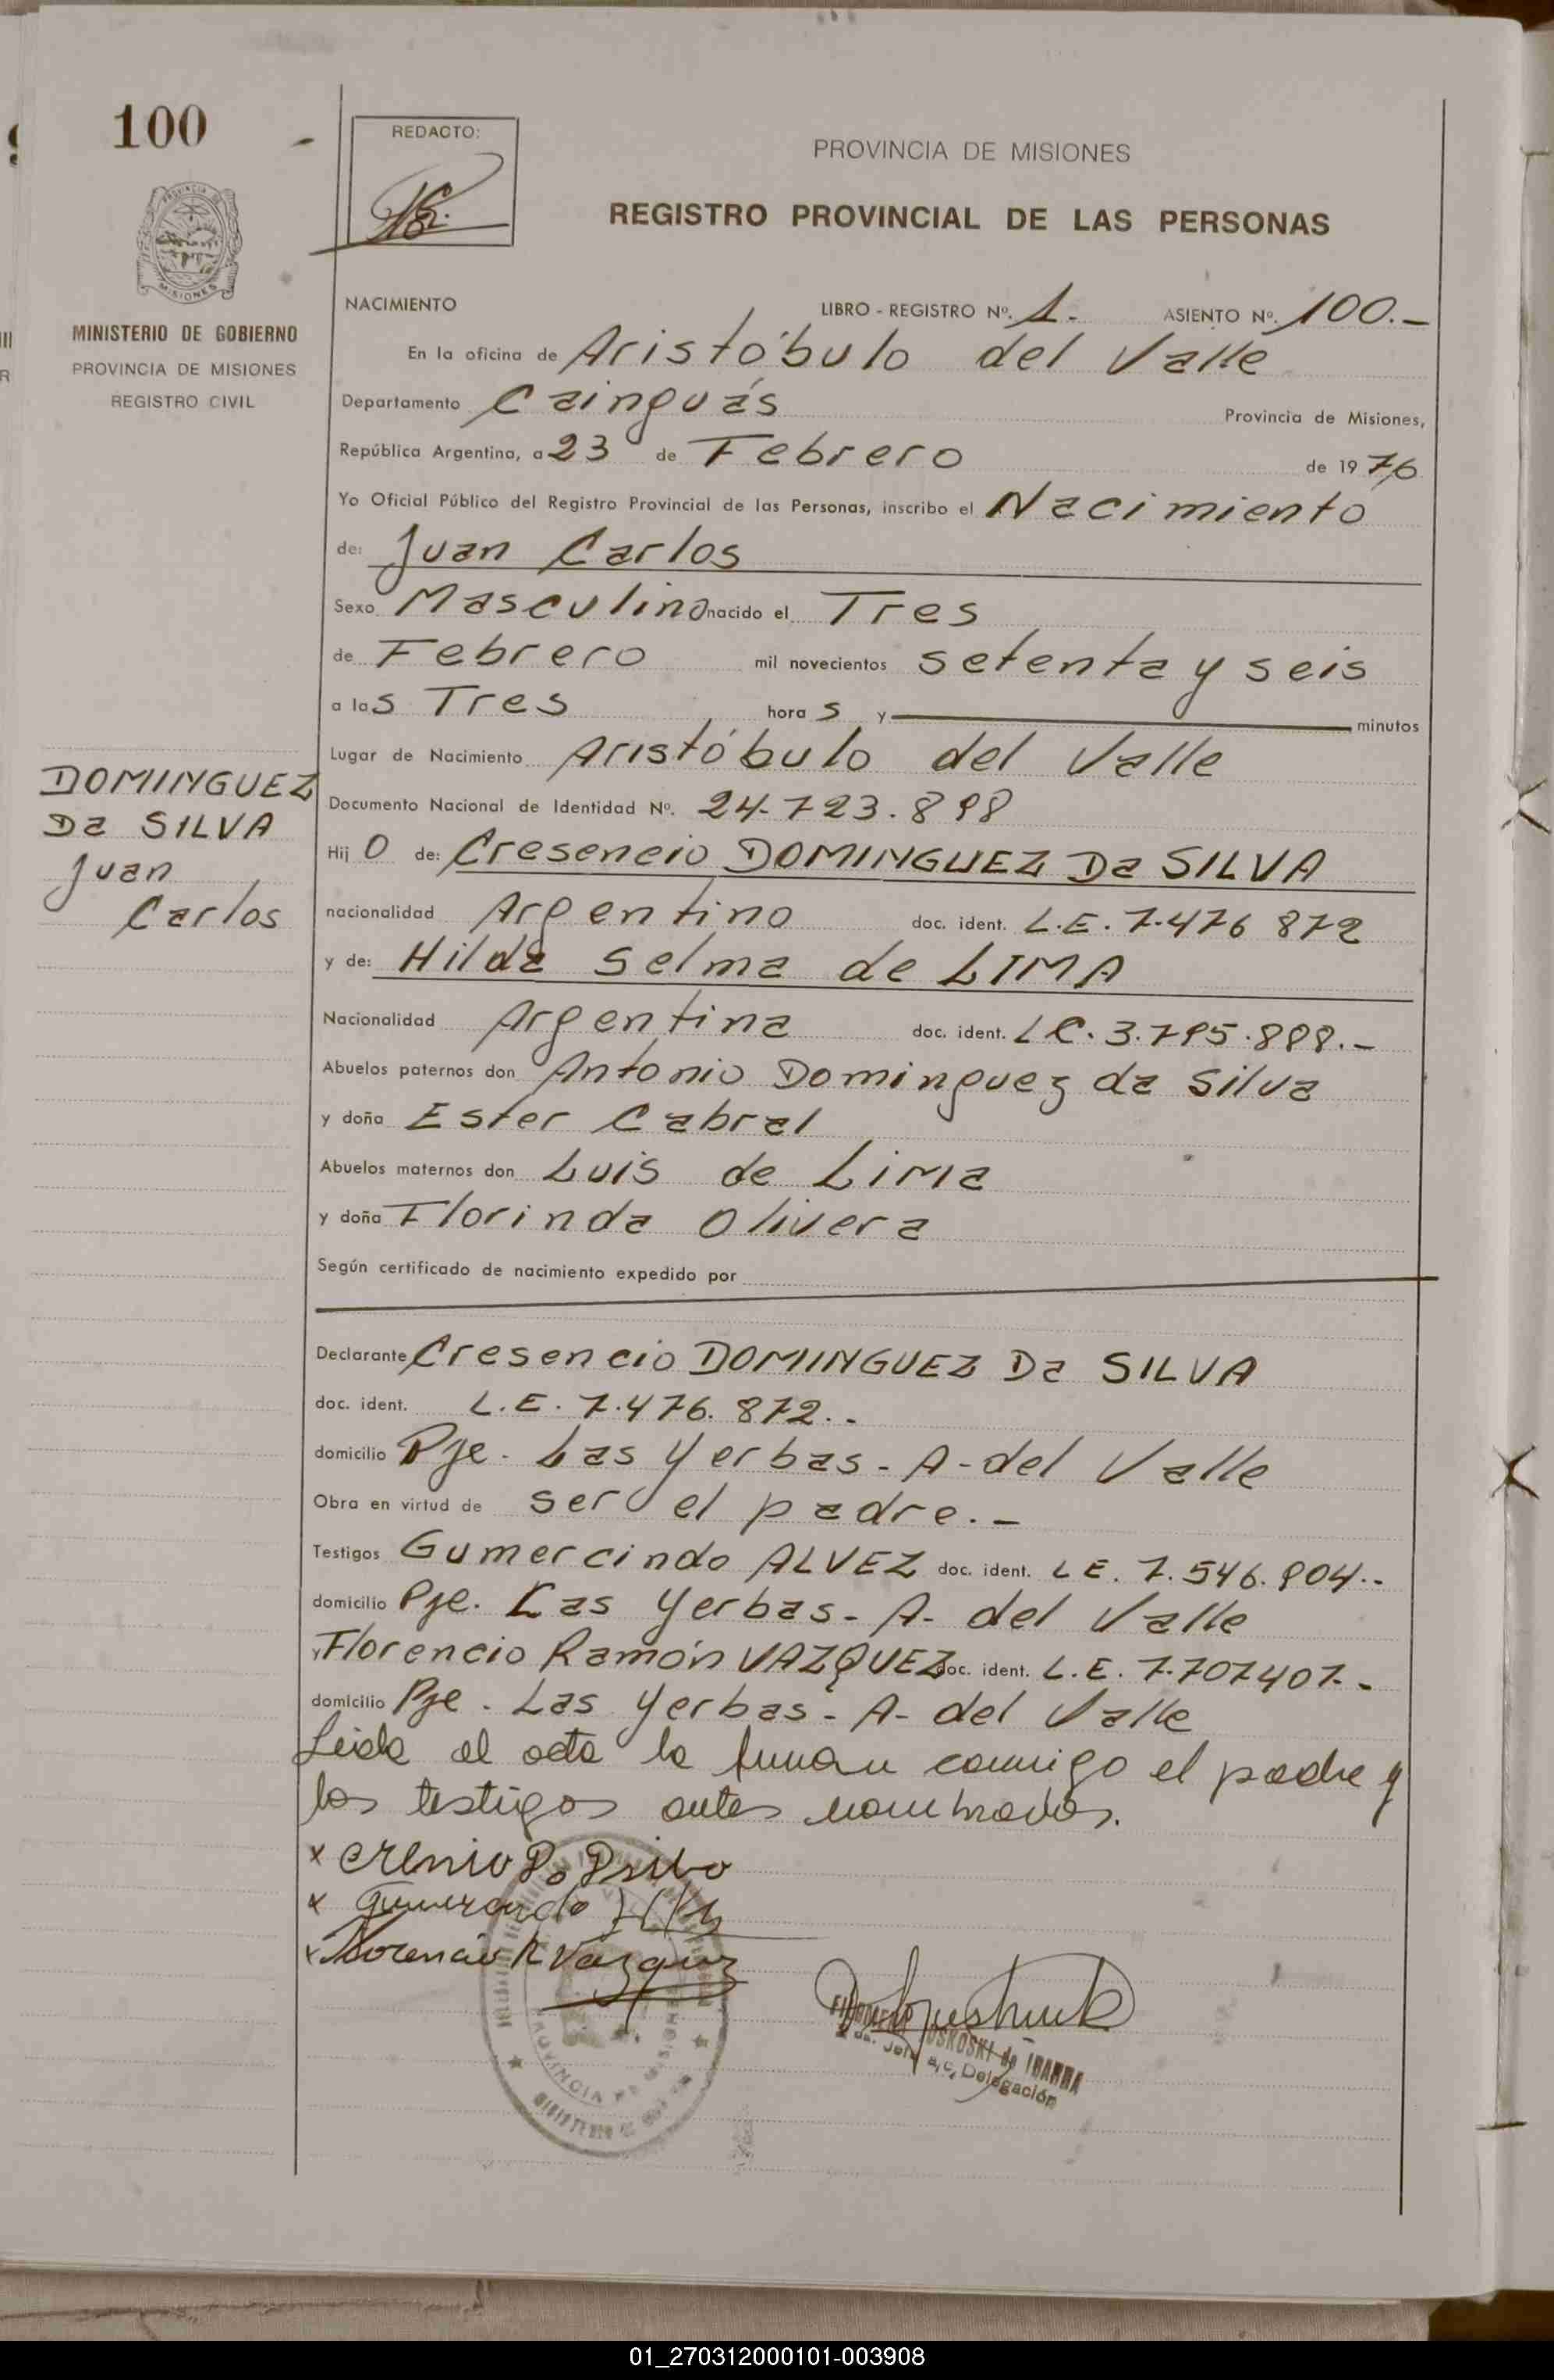 100
REDACTO:
PROVINCIA DE MISIONES
REGISTRO PROVINCIAL DE LAS PERSONAS
MISIONES
MINISTERIO DE GOBIERNO
PROVINCIA DE MISIONES
REGISTRO CIVIL
NACIMIENTO LIBRO - REGISTRO Nº. 1.- ASIENTO Nº. 100.-
En la oficina de Aristóbulo del Valle
Departamento Cainguás Provincia de Misiones,
República Argentina, a 23 de Febrero de 1976
Yo Oficial Público del Registro Provincial de las Personas, inscribo el Nacimiento
de: Juan Carlos
Sexo Masculino nacido el Tres
de Febrero mil novecientos setenta y seis
a las Tres horas y minutos
Lugar de Nacimiento Aristóbulo del Valle
DOMINGUEZ
Da SILVA
Juan
Carlos
Documento Nacional de Identidad Nº. 24.723.898
Hijo de: Cresencio DOMINGUEZ Da SILVA
nacionalidad Argentino doc. ident. L.E. 7.476 872
y de: Hilda Selma de LIMA
Nacionalidad Argentina doc. ident. LC. 3.795.888.-
Abuelos paternos don Antonio Dominguez da Silva
y doña Ester Cabral
Abuelos maternos don Luis de Lima
y doña Florinda Olivera
Según certificado de nacimiento expedido por
Declarante Cresencio DOMINGUEZ Da SILVA
doc. ident. L.E. 7.476.872.-
domicilio Pje. Las Yerbas - A- del Valle
Obra en virtud de ser el padre.-
Testigos Gumercindo ALVEZ doc. ident. LE. 7.546.904.-
domicilio Pje. Las Yerbas - A- del Valle
y Florencio Ramón VAZQUEZ doc. ident. L.E. 7.707407.-
domicilio Pje. Las Yerbas - A- del Valle
Leida el acta la firman conmigo el padre y
los testigos antes nombrados.
x
x Gumercindo
x Florencio R Vazquez
PROVINCIA DE MISIONES
MINISTERIO DE
de IBARRA
Delegación
01_270312000101-003908